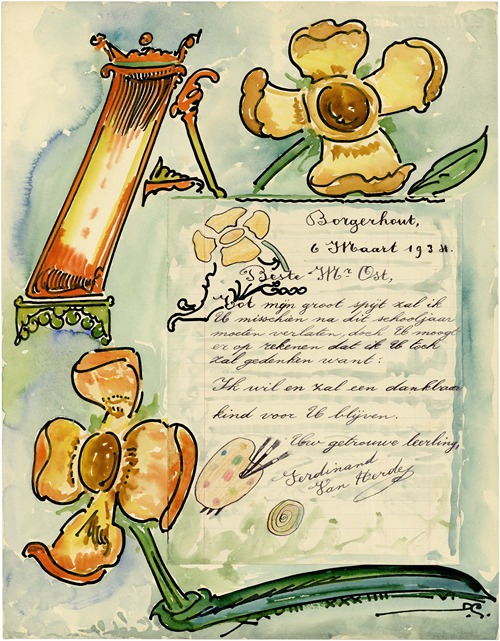 Borgerhout,
6 Maart 1931.
Beste Mr Ost,
Tot mijn groot spijt zal ik
U misschien na dit schooljaar
moeten verlaten, doch U moogt
er op rekenen dat ik U toch
zal gedenken want:
Ik wil en zal een dankbaar
kind voor U blijven.
Uw getrouwe leerling,
Ferdinand
Van Herde